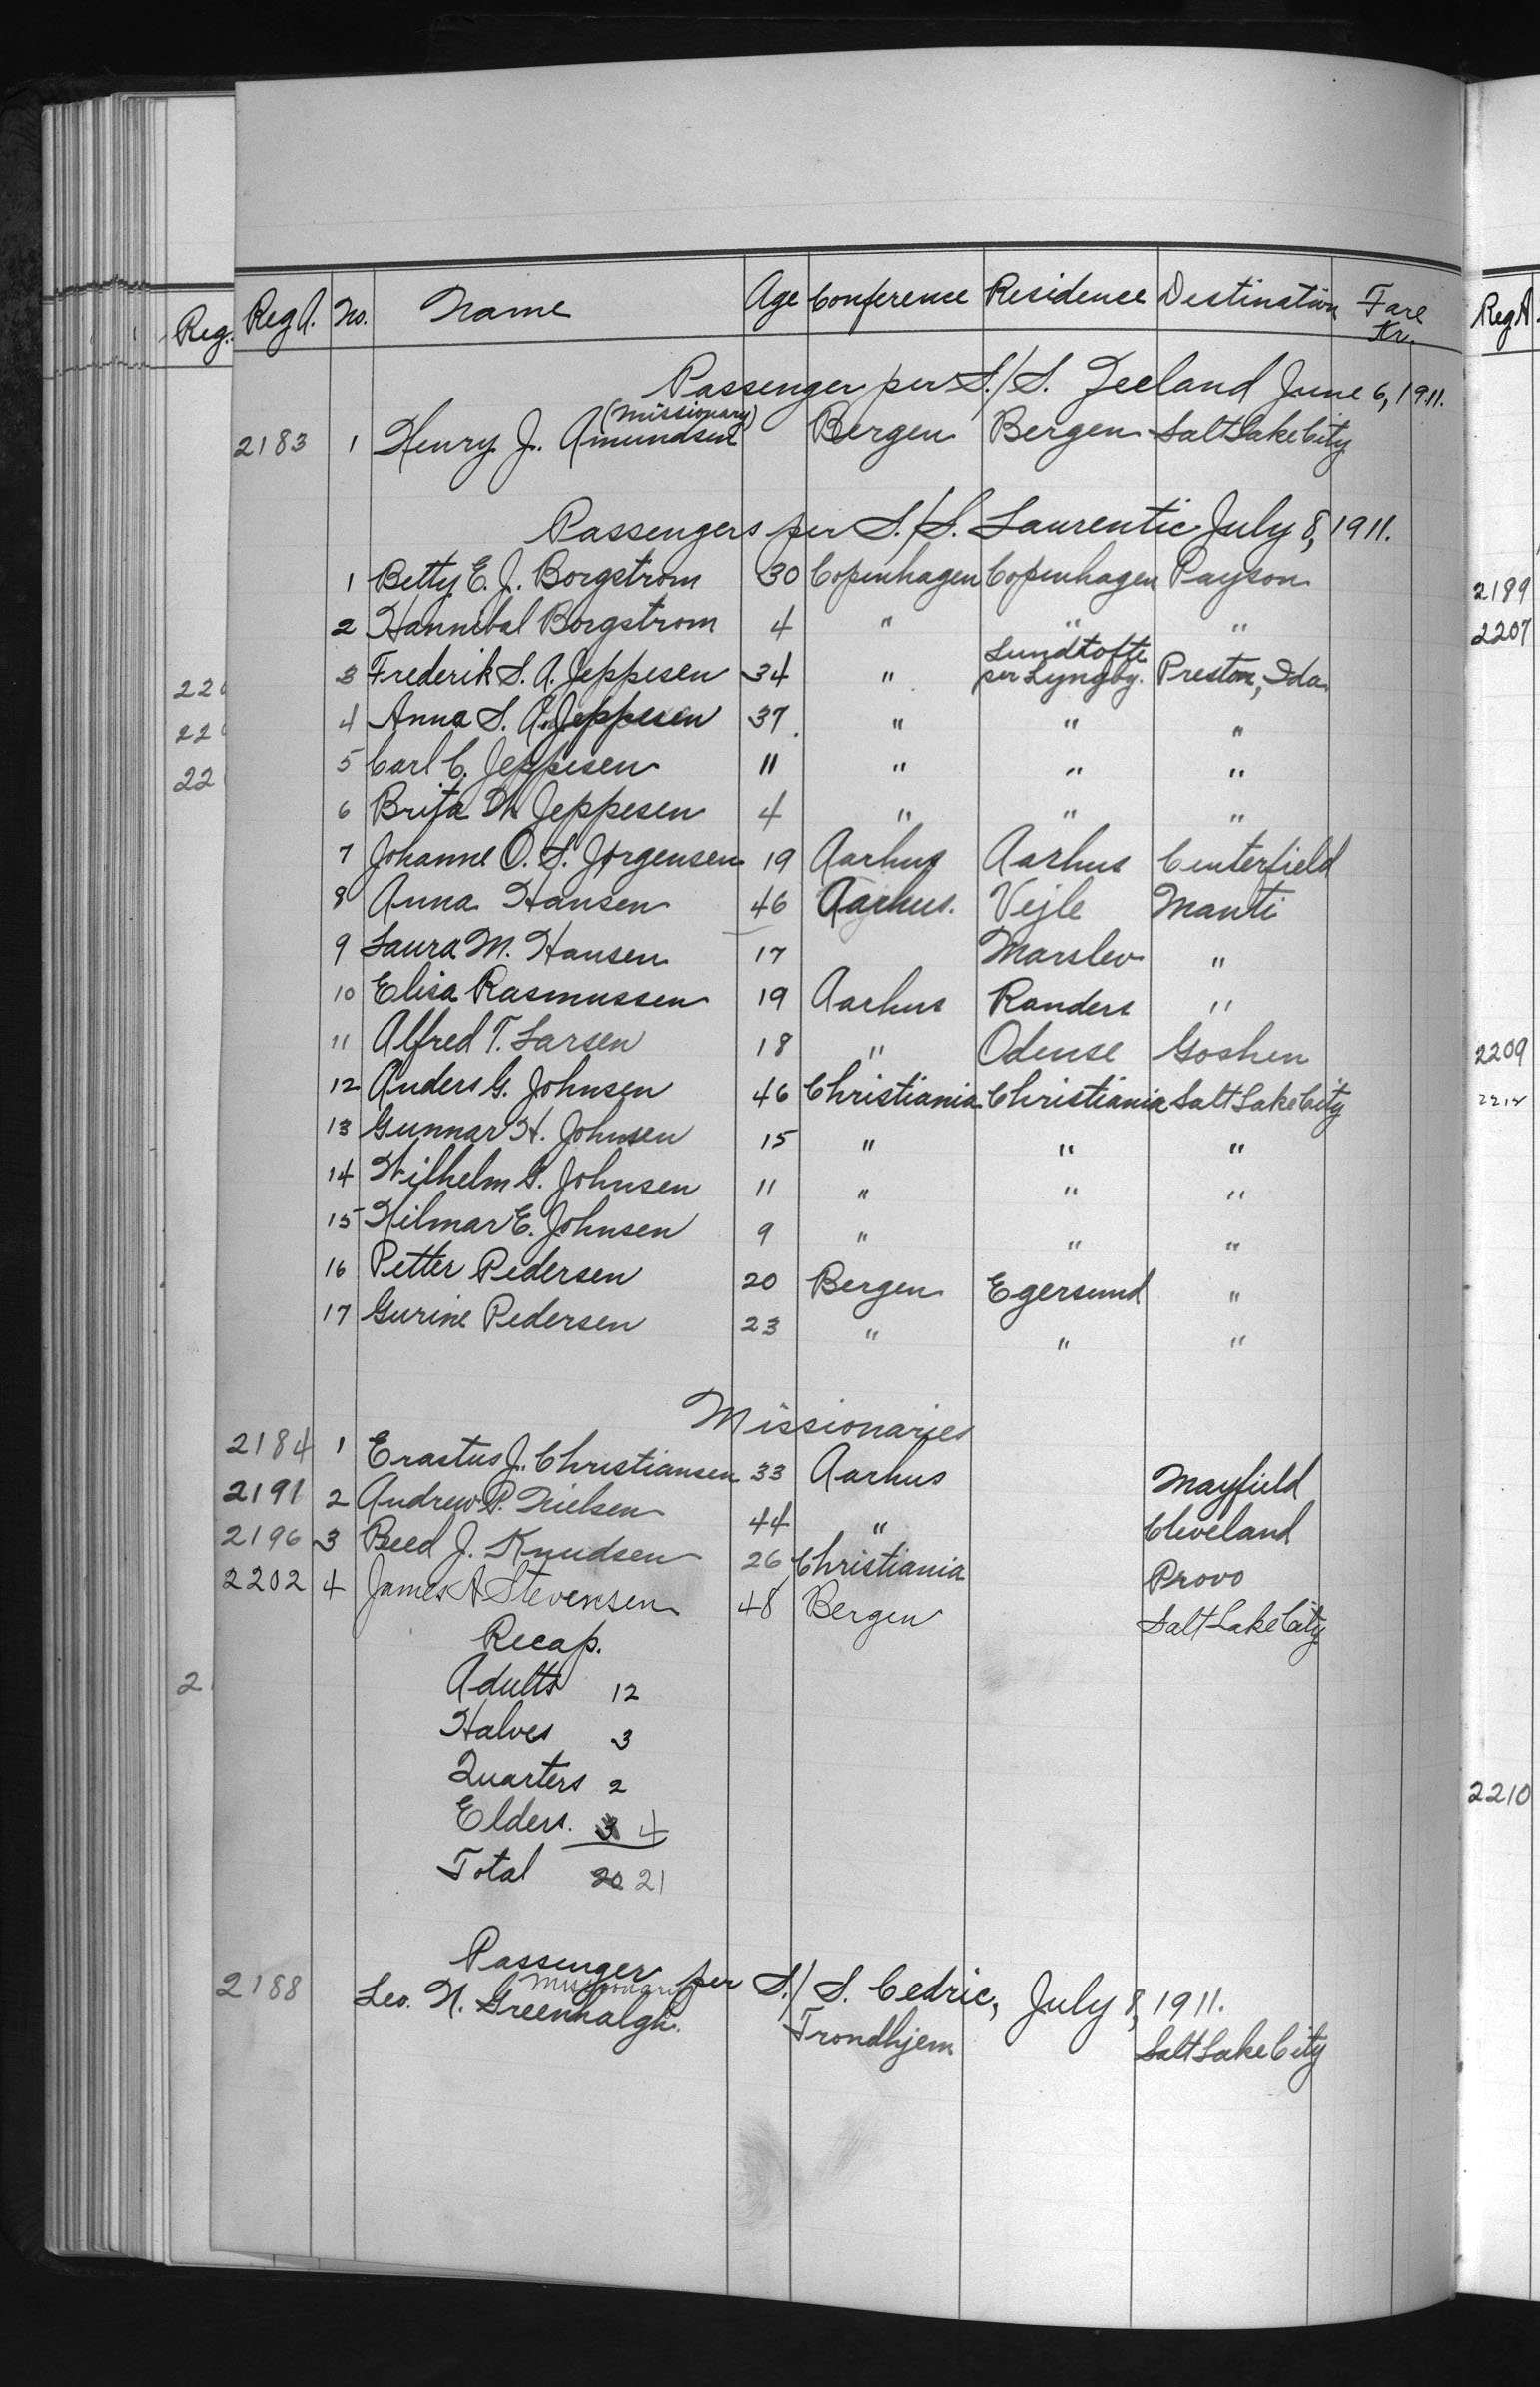 Reg. Reg A. No. Name Age Conference Residence Destination Fare Kr. Reg A.
Passenger per S./S. Zeeland June 6, 1911.
(Missionary)
2183 1 Henry J. Amundsen Bergen Bergen Salt Lake City
Passengers per S./S. Laurentic July 8, 1911.
1 Betty E. J. Borgstrom 30 Copenhagen Copenhagen Payson
2189
2 Hannibal Borgstrom 4 " " "
2207
Lundtofte
3 Frederik S. A. Jeppesen 34 " per Lyngby. Preston, Ida.
4 Anna S. A. Jeppesen 37. " " "
5 Carl C. Jeppesen 11 " " "
6 Brita M. Jeppesen 4 " " "
7 Johanne O. S. Jørgensen 19 Aarhus Aarhus Centerfield
8 Anna Hansen 46 Aarhus. Vejle Manti
9 Laura M. Hansen 17 Marslev "
10 Elisa Rasmussen 19 Aarhus Randers "
11 Alfred T. Larsen 18 " Odense Goshen
2209
12 Anders G. Johnsen 46 Christiania Christiania Salt Lake City
2212
13 Gunnar H. Johnsen 15 " " "
14 Wilhelm G. Johnsen 11 " " "
15 Hilmar E. Johnsen 9 " " "
16 Petter Pedersen 20 Bergen Egersund "
17 Gurine Pedersen 23 " " "
Missionaries
2184 1 Erastus J. Christiansen 33 Aarhus Mayfield
2191 2 Andrew P. Nielsen 44 " Cleveland
2196 3 Reed J. Knudsen 26 Christiania Provo
2202 4 James A Stevensen 48 Bergen Salt Lake City
Recap.
Adults 12
Halves 3
Quarters 2
2210
Elders. 3 4
Total 20 21
Passenger per S./S. Cedric, July 8, 1911.
Missionary
2188 Leo. N. Greenhalgh. Trondhjem Salt Lake City